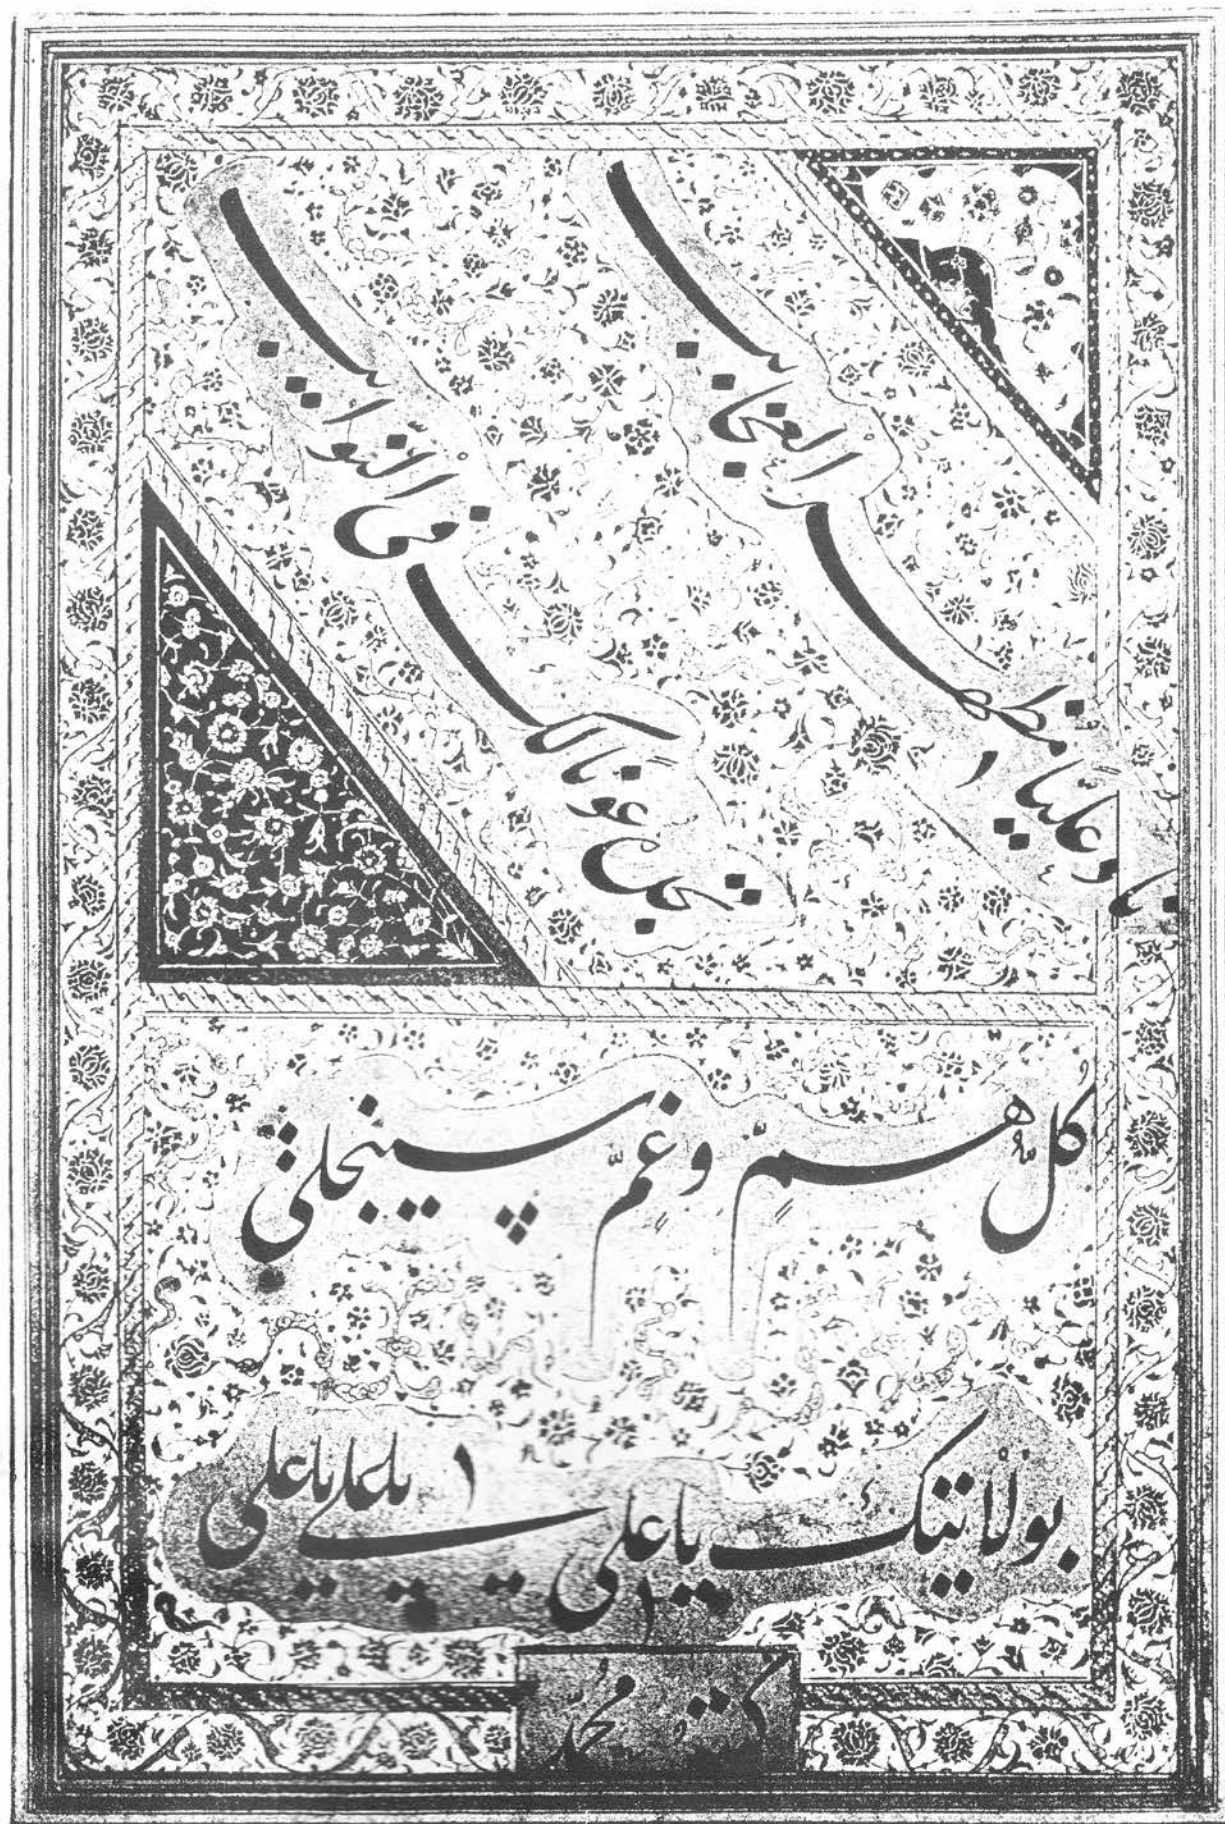 ناد علیًا مظهر العجائب
تجده عونا لک فی النوائب
کل همٍ و غمٍّ سینجلی
بولایتک یا علی یا علی یا علی
کتبه محمد